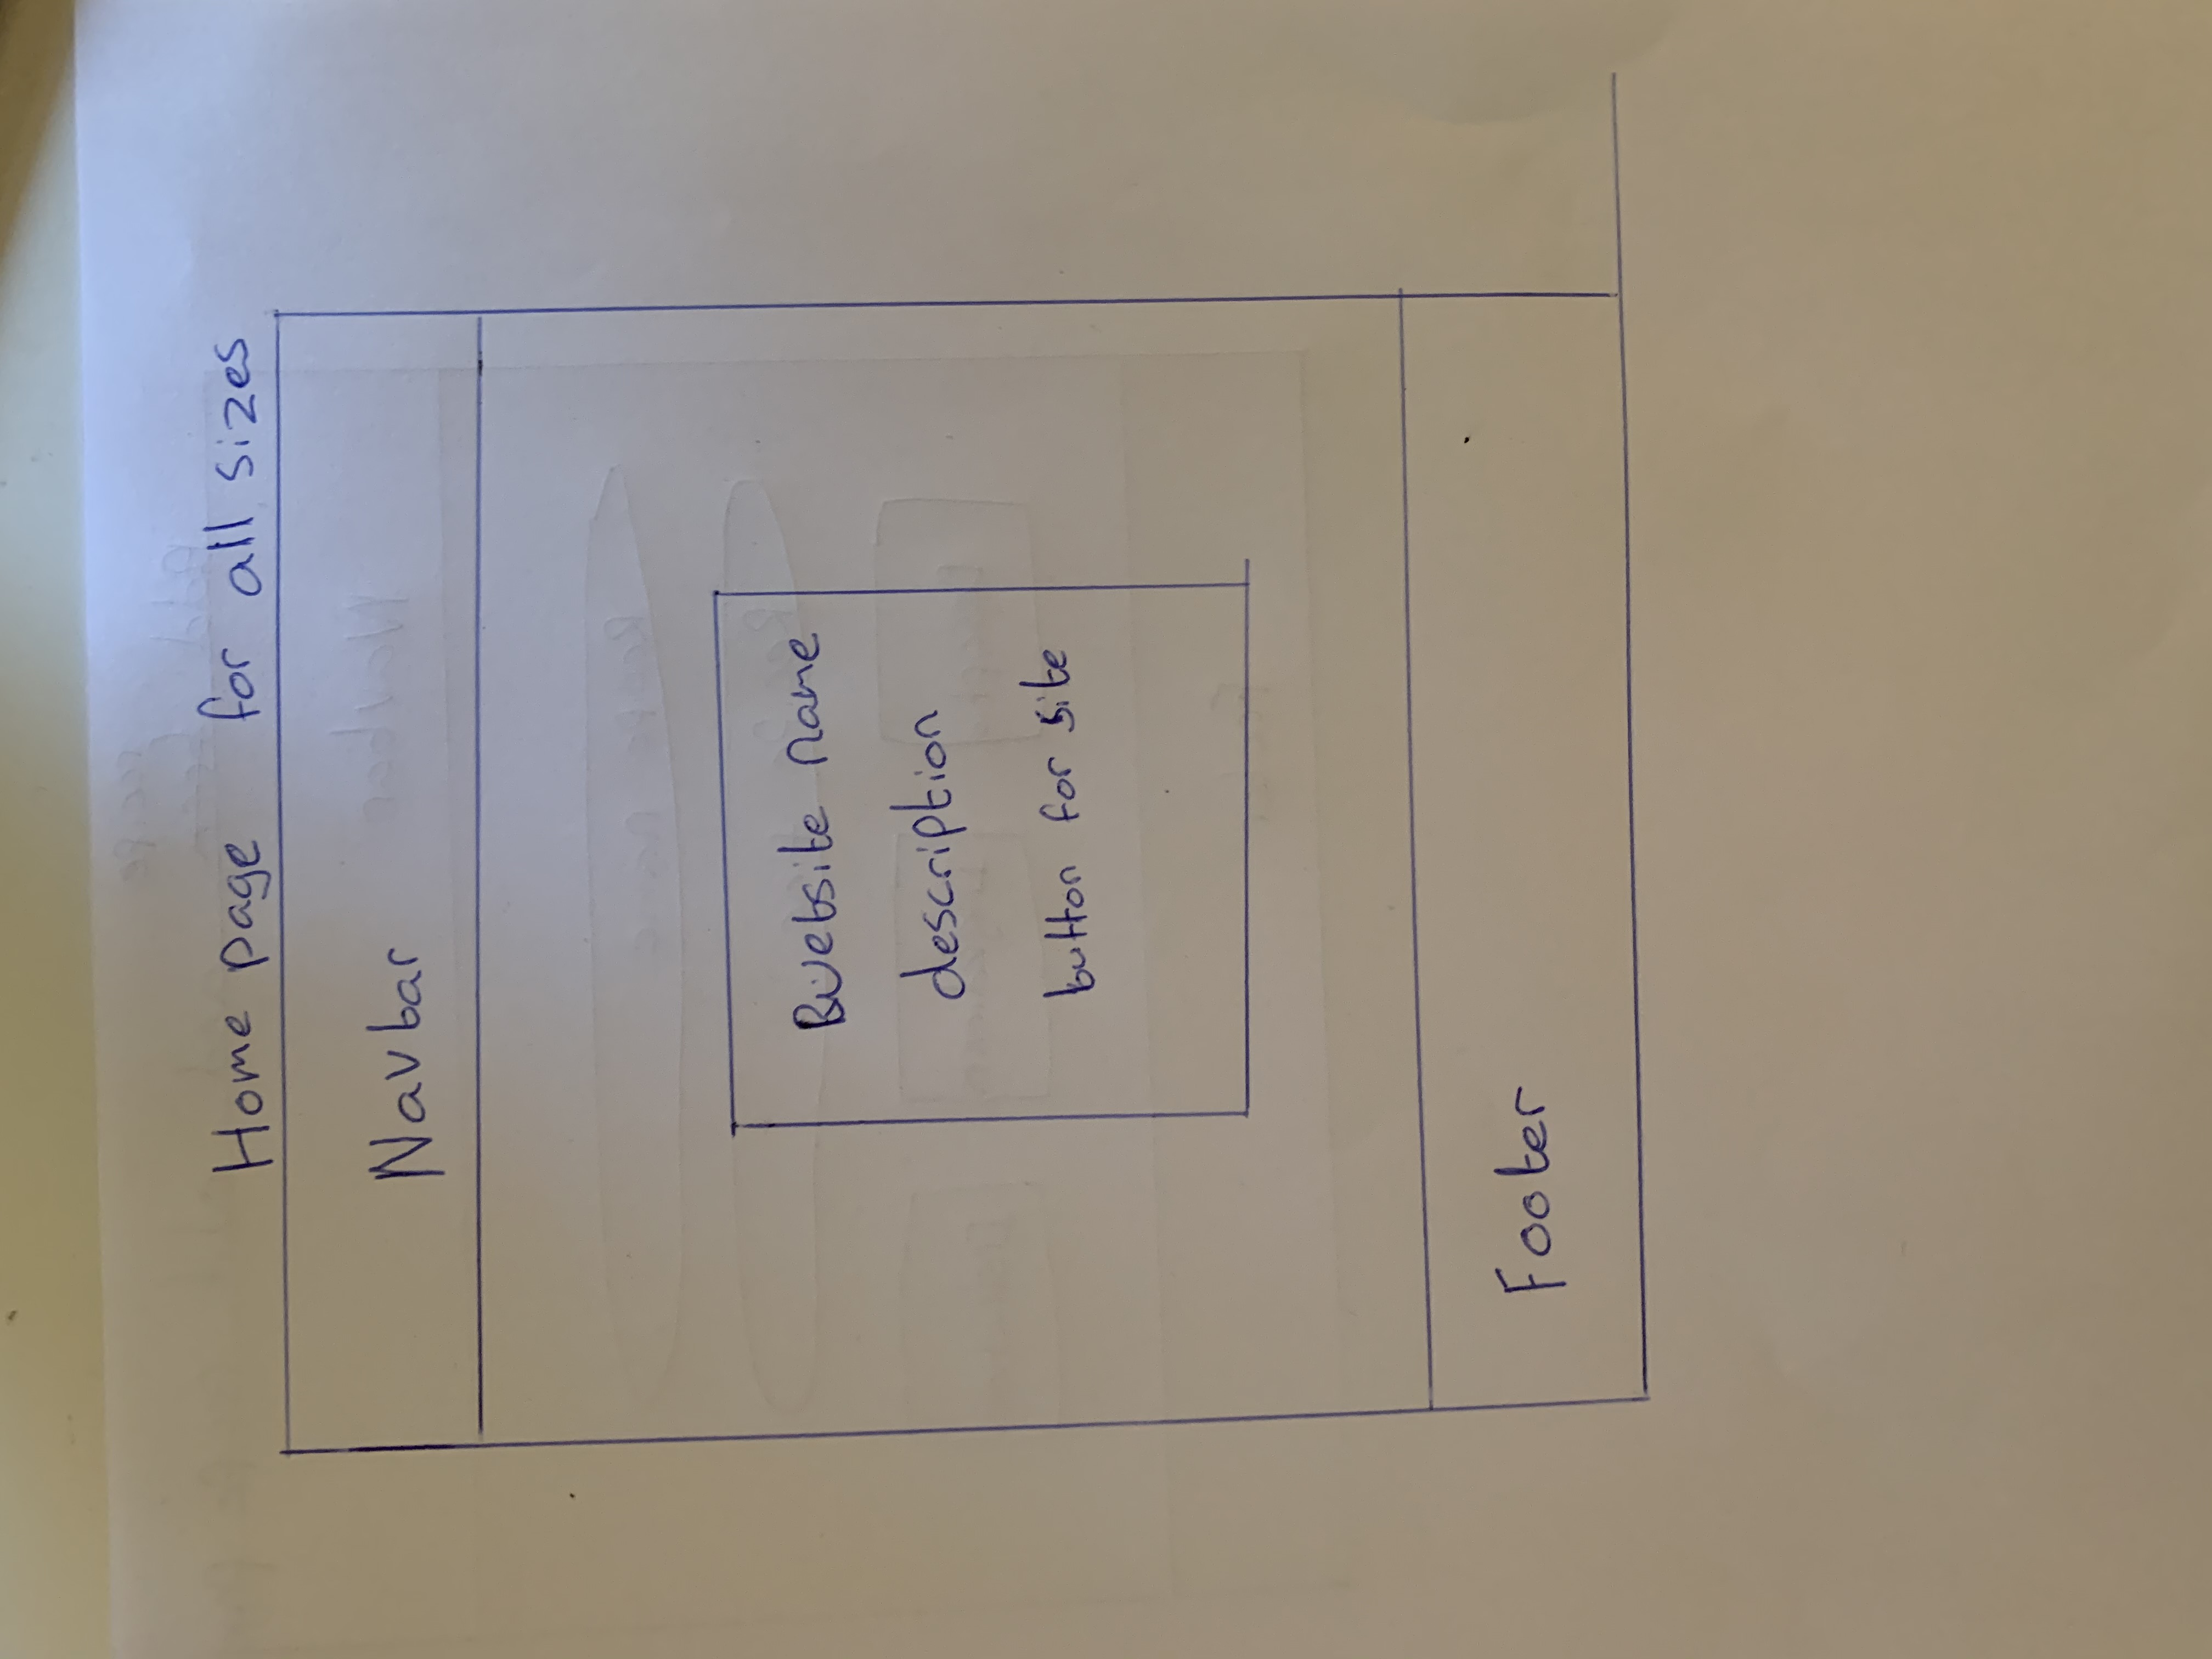 Home page for all sizes
Navbar
website name
description
button for site
Footer